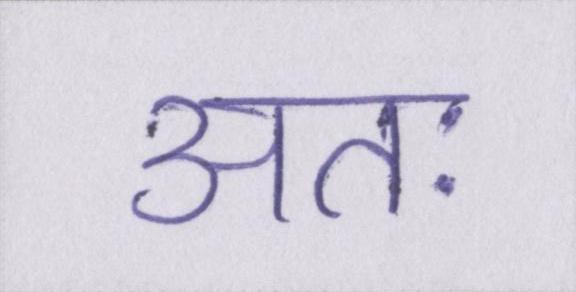 अतः